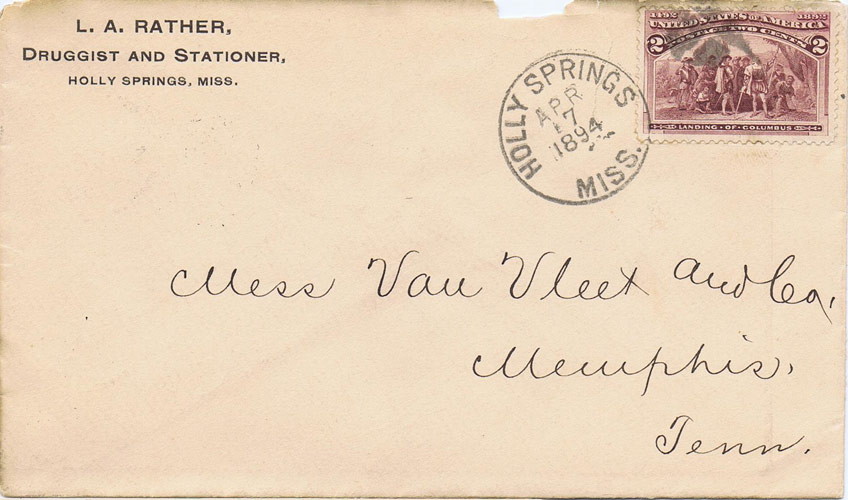 L. A. RATHER,
DRUGGIST AND STATIONER,
HOLLY SPRINGS, MISS.
HOLLY SPRINGS
APR
17
1894
MISS.
1492 1892
UNITED STATES OF AMERICA
POSTAGE TWO CENTS
2 2
LANDING · OF · COLUMBUS
Mess Van Vleet and Co,
Memphis.
Tenn.